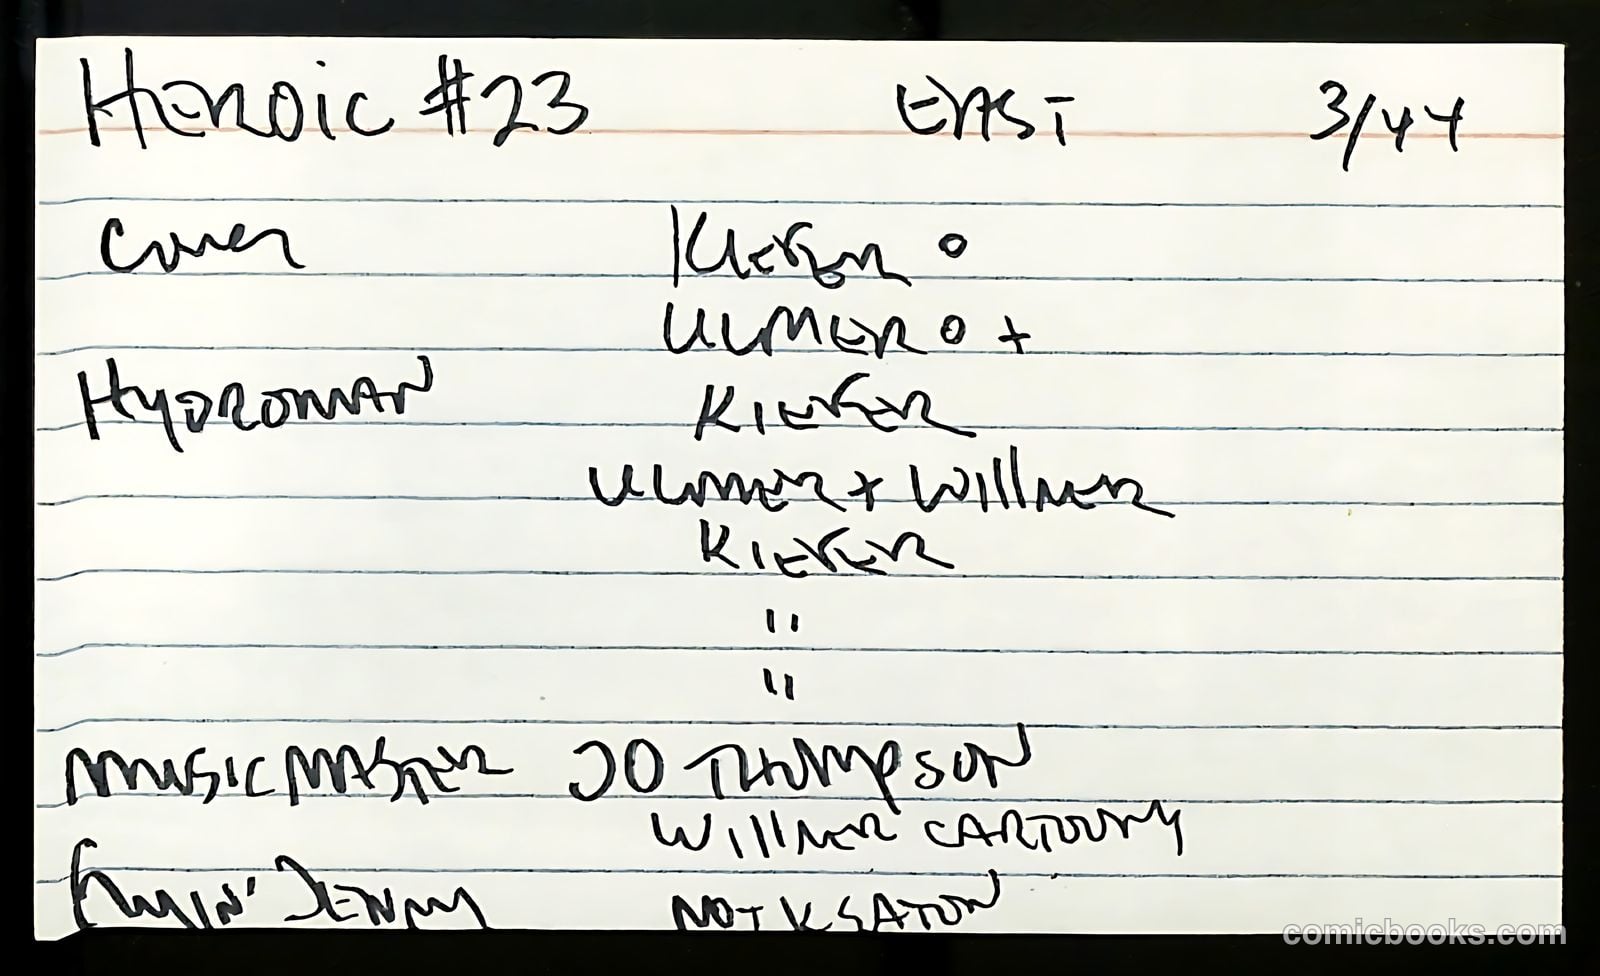 HEROIC #23 EAST 3/44
Cover KIEFER o
ULMER o +
HYDROMAN KIEFER
ULMER + WILLNER
KIEFER
"
"
MUSIC MASTER JO THOMPSON
WILLNER CARTOONY
FLYIN' JENNY NOT K SATON
comicbooks.com